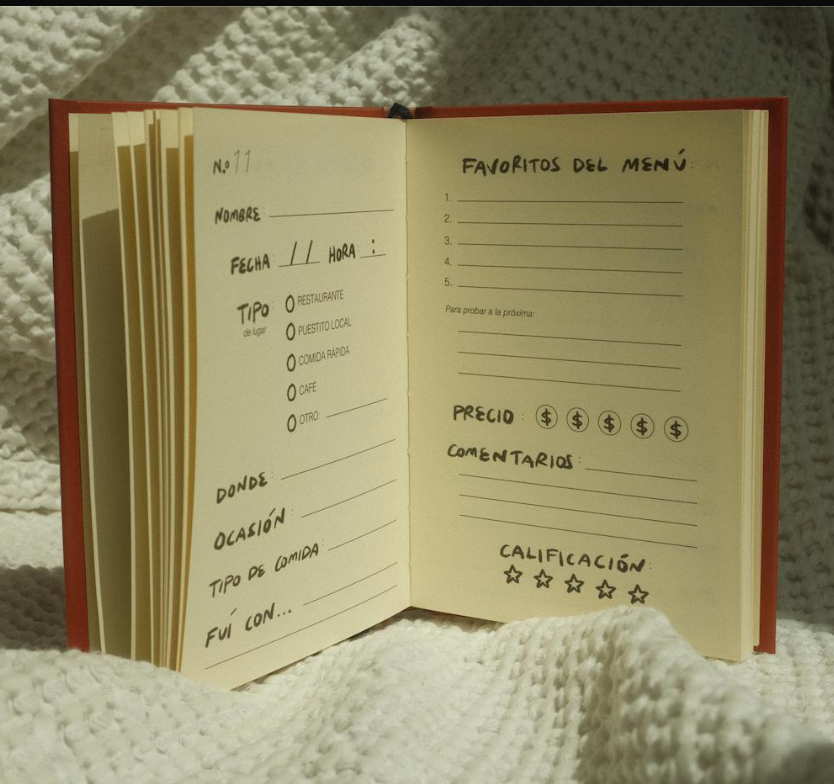 N.º 11
NOMBRE:
FECHA: / / HORA: :
TIPO:
de lugar
RESTAURANTE
PUESTITO LOCAL
COMIDA RÁPIDA
CAFÉ
OTRO:
DONDE:
OCASIÓN:
TIPO DE COMIDA:
FUÍ CON...
FAVORITOS DEL MENÚ:
1.
2.
3.
4.
5.
Para probar a la próxima:
PRECIO: $ $ $ $ $
COMENTARIOS:
CALIFICACIÓN: